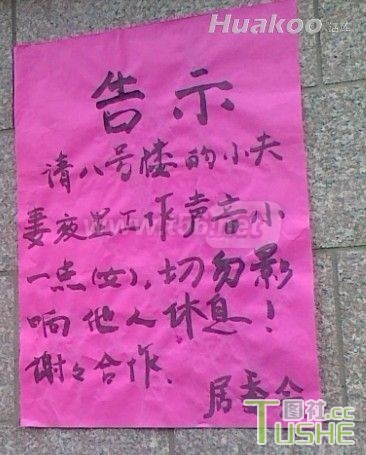 Huakoo 活库
告示
请八号楼的小夫
妻夜里工作声音小
一点(女),切勿影
响他人休息!
谢々合作.
居委会
图社.cc
TUSHE